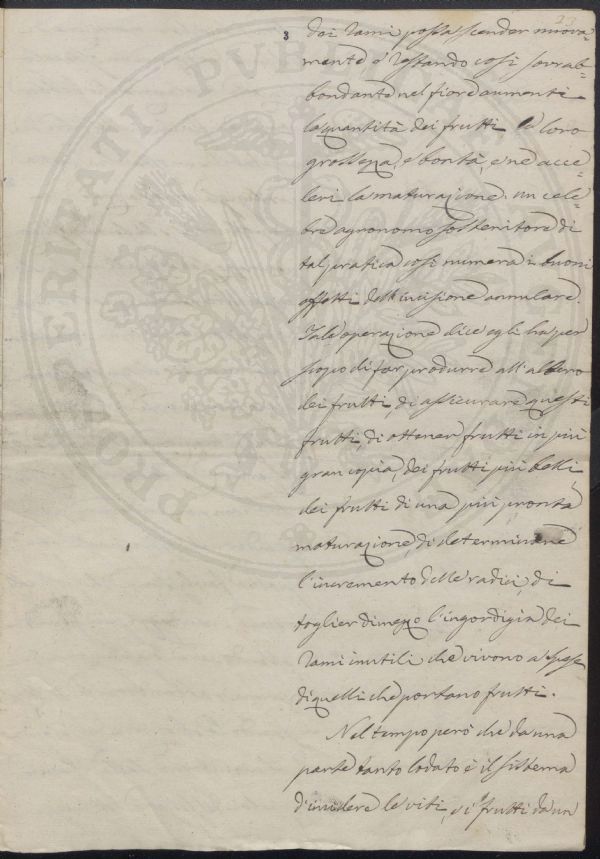 23
3
dei rami possa scender nuova=
mente e restando così sovrab=
bondante nel fiore aumenti
la quantità dei frutti la loro
grossezza, e bontà, e ne acce=
leri la maturazione. un cele=
bre agronomo sostenitore di
tal pratica così numera i buoni
effetti dell'incisione annulare.
Tale operazione dice egli ha per
scopo di far produrre all'albero
dei frutti, di assicurare questi
frutti, di ottener frutti in più
gran copia, dei frutti più belli
dei frutti di una più pronta
maturazione, di determinare
l'incremento delle radici, di
toglier di mezzo l'ingordigia dei
rami inutili che vivono a spese
di quelli che portano frutti.
Nel tempo però che da una
parte tanto lodato è il sistema
d'incidere le viti, e i frutti da un
PROSPERITATI PVBLICAE